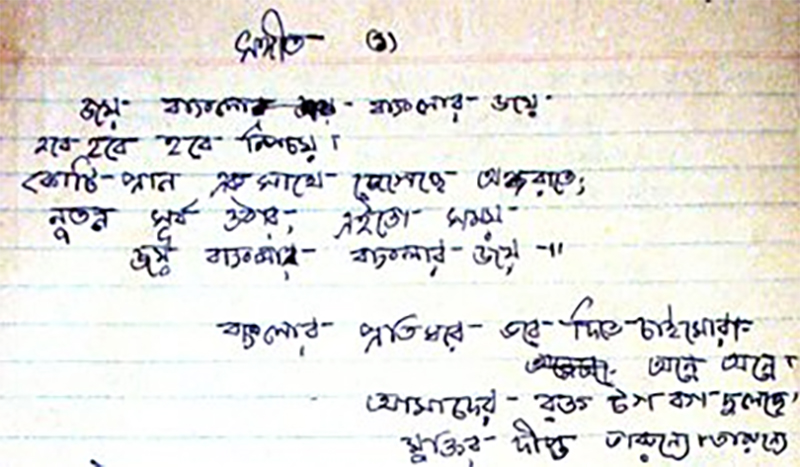 সঙ্গীত (১)
জয় বাংলার বাংলার জয়
হবে হবে হবে নিশ্চয়।
কোটি প্রান এক সাথে জেগেছে অন্ধরাতে;
নুতন সূর্য ওঠার, এইতো সময়
জয় বাংলার বাংলার জয়॥
বাংলার প্রতিঘরে ভরে দিতে চাইমোরা
অন্নে অন্নে।
আমাদের রক্ত টগ বগ দুলছে
মুক্তির দীপ্ত তারুন্যে তারুন্যে